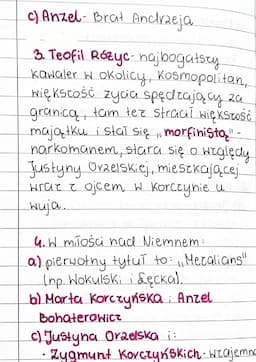 c) Anzel - Brat Andrzeja
3. Teofil Różyc - najbogatszy
kawaler w okolicy, Kosmopolitan,
większość życia spędzający za
granicą, tam też stracił większość
majątku i stał się „morfinistą" -
narkomanem, stara się o względy
Justyny Orzelskiej, mieszkającej
wraz z ojcem w Korczynie u
wuja.
4. W miłości nad Niemnem:
a) pierwotny tytuł to: „Mezalians"
(np. Wokulski i Łęcka).
b) Marta Korczyńska i Anzel
Bohaterowicz
c) Justyna Orzelska i:
• Zygmunt Korczyńskich - wzajemna